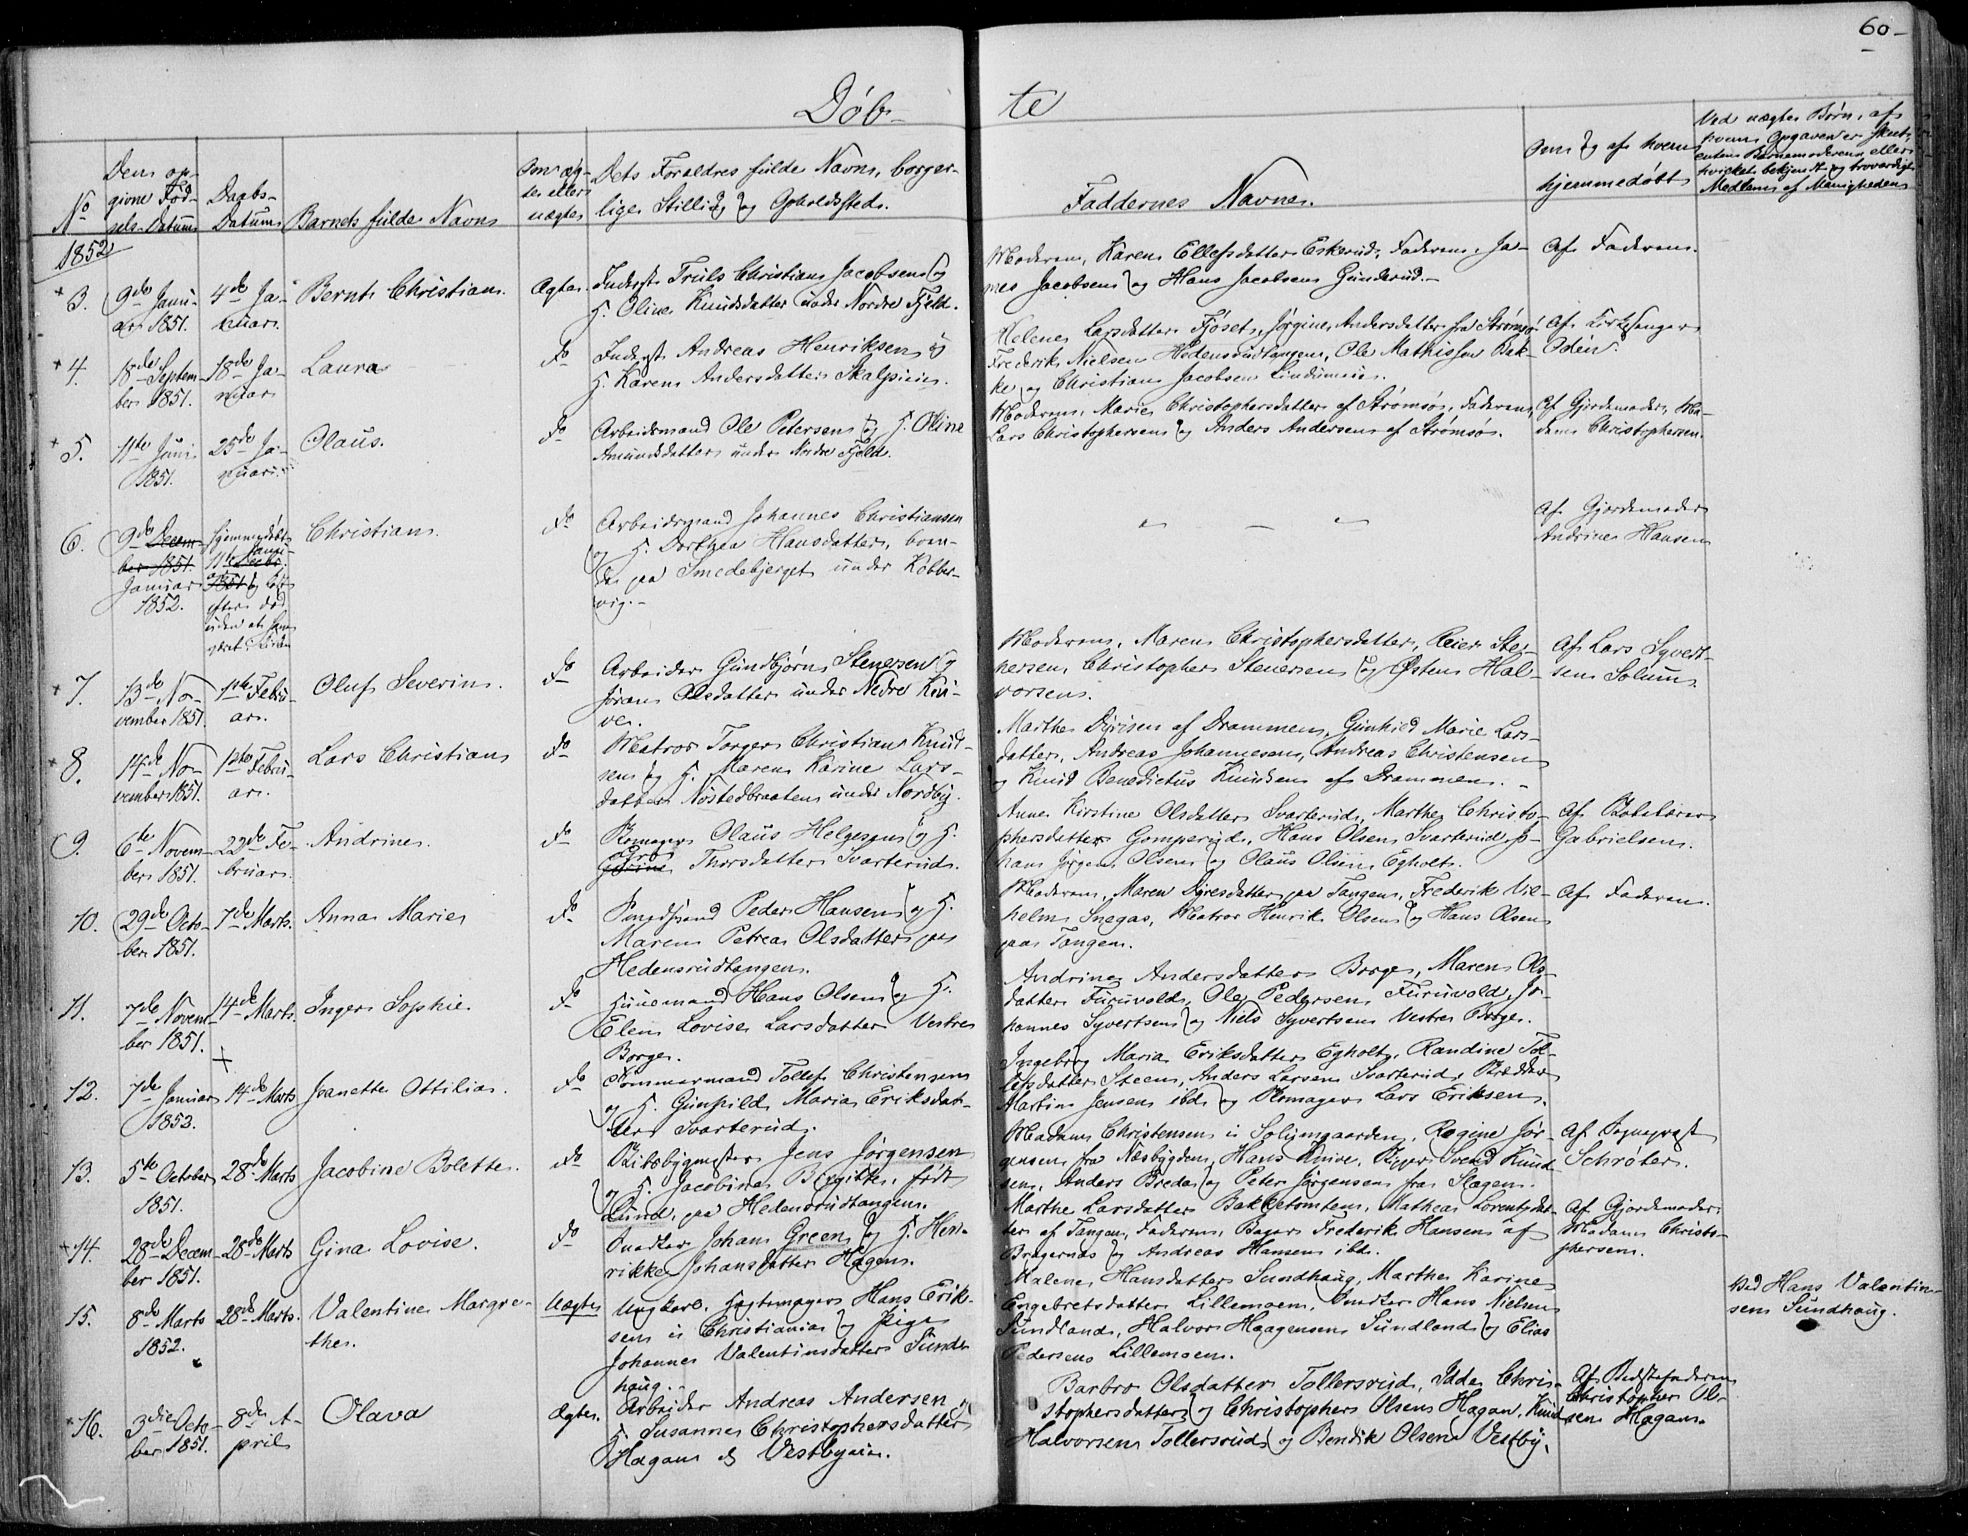 60
Døb-
te
No
Dens op-
givne Fød-
sels-Datum
Daabs-
Datum
Barnets fulde Navn
Om æg-
te eller
uægte
Dets Forældres fulde Navn, borger-
lige Stilling og Opholdssted.
Faddernes Navne.
Om og af hvem
hjemmedøbt
Ved uægte Børn, af
hvem Opgaven er skeet
enten Barnemoderen eller
hvilket bekjendt og troværdigt
Medlem af Menigheden
1852
3.
9de Janu-
ar 1851.
4de Ja-
nuar.
Bernt Christian.
Ægte.
Inderst Truls Christian Jacobsen og
H. Oline Knudsdatter under Nordre Fjeld.
Moderen, Karen Ellefsdatter Eskerud, Faderen, Ja-
mes Jacobsen og Hans Jacobsen Gunderud.
Af Faderen.
4.
18de Septem-
ber 1851.
18de Ja-
nuar
Laura
do
Inderst Andreas Henriksen og
H. Karen Andersdatter
Helene Larsdatter Fjøset, Jørgine Andersdatter fra Strømsø,
Frederik Nielsen Hedensrudtangen, Ole Mathissen Bak-
ke og Christian Jacobsen
Af Kirkesanger
Odén.
5.
11te Juni
1851.
25de Ja-
nuar.
Olaus.
do
Arbeidsmand Ole Petersen og H. Oline
Amundsdatter under Nordre Fjeld.
Moderen, Maria Christophersdatter af Strømsø, Faderen,
Lars Christophersen og Anders Andersen af Strømsø.
Af Gjordemoder, Ma-
dame Christophersen.
6.
9de Decem-
ber 1851.
Januar
1852.
hjemmedøbt
11te Decbr.
Januar
1851 og
efter død
uden at have
været i Kirken
Christian.
do
Arbeidsmand Johannes Christiansen
og H. Dorthea Hansdatter, boen-
de paa Smedebjerget under Kobber-
vig.-
Af Gjordemoder
Andrine Hansen
7.
13de No-
vember 1851.
1ste Febru-
ar.
Oluf Severin.
do
Arbeider Gundbjørn Stenersen og
Jøran Olsdatter under Nedre Kni-
ve.
Moderen, Maren Christophersdatter, Reier Ste-
nersen, Christopher Stenersen og Østen Hal-
vorsen.
Af Lars Syvert-
sen Solum.
8.
14de No-
vember 1851.
1ste Febru-
ar.
Lars Christian
do
Matros Torger Christian Knud-
sen og H. Maren Karine Lars-
datter Nøstedbraaten under Nordby.
Marthe Dyrisen af Drammen, Gunhild Marie Lars-
datter, Andreas Johannesen, Andreas Christensen
og Knud Benedictus Knudsen af Drammen.
9.
6te Novem-
ber 1851.
22de Fe-
bruar.
Andrine.
do
Olaus Helgesen og H.
Thorsdatter Svarterud.
Anne Kirstine Olsdatter Svarterud, Marthe Christo-
phersdatter Gomperud, Hans Olsen Svarterud, Jo-
han Jørgen Olsen og Olaus Olsen Egholt.
Af
Gabrielsen.
10.
29de Octo-
ber 1851.
7de Marts.
Anna Marie
do
Peder Hansen og H.
Maren Petrea Olsdatter paa
Hedensrudtangen.
Moderen, Maren Dyresdatter paa Tangen, Frederik Vil-
helm Snegas, Matros Henrik Olsen og Hans Olsen
paa Tangen.
Af Faderen.
11.
7de Novem-
ber 1851.
14de Marts.
Inger Sophie
do
Huusmand Hans Olsen og H.
Elen Lovise Larsdatter Vestre
Borge.
Andrine Andersdatter Borge, Maren Ols-
datter Furuvold, Ole Pedersen Furuvold, Jo-
hannes Syvertsen og Niels Syvertsen Vestre Borge.
12.
7de Januar
1852.
14de Marts
Jeanette Ottilia.
do
Tømmermand Tollef Christensen
og H. Gunhild Maria Eriksdat-
ter Svarterud.
Ingeborg Maria Eriksdatter Egholt, Randine Tol-
lefsdatter Steen, Anders Larsen Svarterud,
Martin Jensen ibd. og Lars Eriksen.
13.
5te October
1851.
28de Marts
Jacobine Bolette.
do
Skibsbygmester Jens Jørgensen
og H. Jacobine Birgitte, født
Lund, paa Hedensrudtangen.
Madam Christensen i Solumgaarden, Regine Jør-
gensen fra Næsbygden, Hans Knive, Skipper Svend Knud-
sen, Anders Bredes og Peter Jørgensen fra Slagen.
Af Sogneprest
Schrøter.
14.
28de Decem-
ber 1851.
28de Marts
Gina Lovise.
do
Snedker Johan Green og H. Hen-
rikke Johansdatter Hagen.
Marthe Larsdatter Bakketomten, Mathea Lorentsdat-
ter af Tangen, Faderen, Bager Frederik Hansen af
Bragernæs og Andreas Hansen ibd.
Af Gjordemoder
Madam Christo-
phersen.
15.
8de Marts
1852.
28de Marts.
Valentine Margre-
the.
Uægte
Ungkarl Hans Erik-
sen i Christiania og Pige
Johanne Valentinsdatter Sund-
haug.
Malene Hansdatter Sundhaug, Marthe Karine
Engebretsdatter Lillemoen, Snedker Hans Nielsen
Sundland, Halvor Haagensen Sundland og Elias
Pedersen Lillemoen.
Ved Hans Valentin-
sen Sundhaug.
16.
3die Octo-
ber 1851.
8de A-
pril
Olava
Ægte.
Arbeider Andreas Andersen og
H. Susanne Christophersdatter
Hagan
Barbro Olsdatter Tollersrud, Idde Chri-
stophersdatter og Christopher Olsen Hagan, Knud
Halvorsen Tollersrud og Bendik Olsen Vestby.
Af Bedstefaderen
Christopher Ol-
sen Hagan.